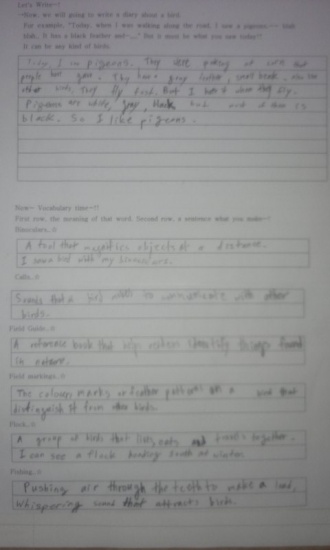 Let's Write~!
~Now, we will going to write a diary about a bird.
For example, "Today, when I was walking along the road, I saw a pigeon.
It has a black feather and~..." But it must be what you saw today!!
It can be any kind of birds.
Today, I saw pigeons. They were
people gave. They have gray feather, small beak. also like
other birds, They fly. But I when they fly.
Pigeons are white, gray, black but most of them is
black. So I like pigeons.
Now~ Vocabulary time~!!
First row, the meaning of that word. Second row, a sentence what you make~!
Binoculars.
A tool that magnifies objects at a distance.
I bird with my binoculars.
Calls.
Sounds that a bird makes to communicate with other
birds.
Field Guide.
A reference book that helps identify things found
in nature.
Field markings.
The colours marks or feather patterns on a bird that
distinguish it from other birds.
Flock.
A group of birds that lives, eats and travels together.
I can see a flock heading south at winter.
Pishing.
Pushing air through the teeth to make a loud,
whispering sound that attracts birds.